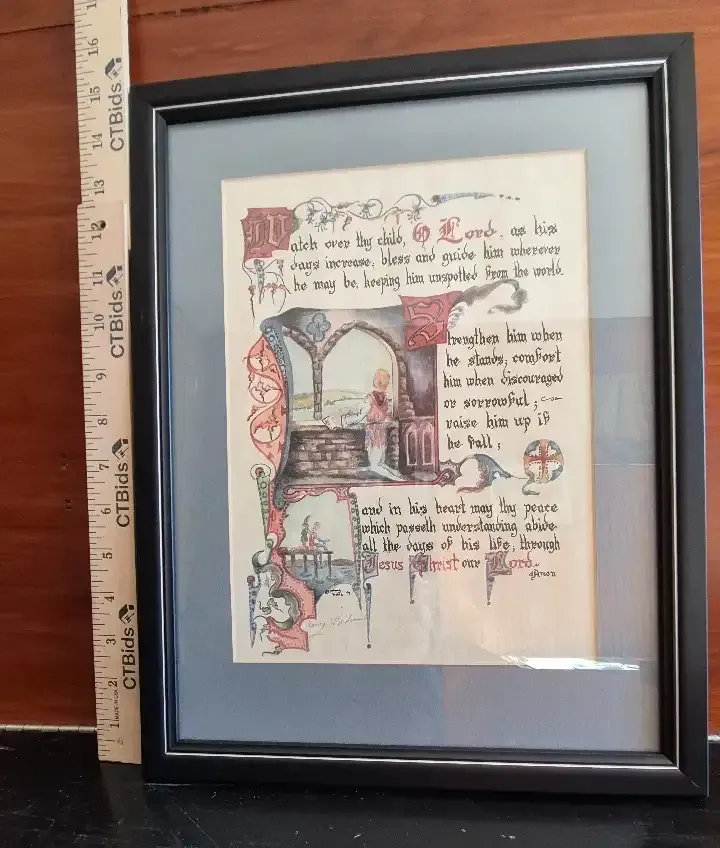 Watch over thy child, O Lord, as his
days increase; bless and guide him wherever
he may be, keeping him unspotted from the world.
Strengthen him when
he stands; comfort
him when discouraged
or sorrowful;
raise him up if
he fall;
and in his heart may thy peace
which passeth understanding abide
all the days of his life; through
Jesus Christ our Lord.
Amen
16
15
CTBids
14
13
12
11
CTBids
10
9
8
7
CTBids
6
5
4
3
CTBids
2
MADE IN USA
1